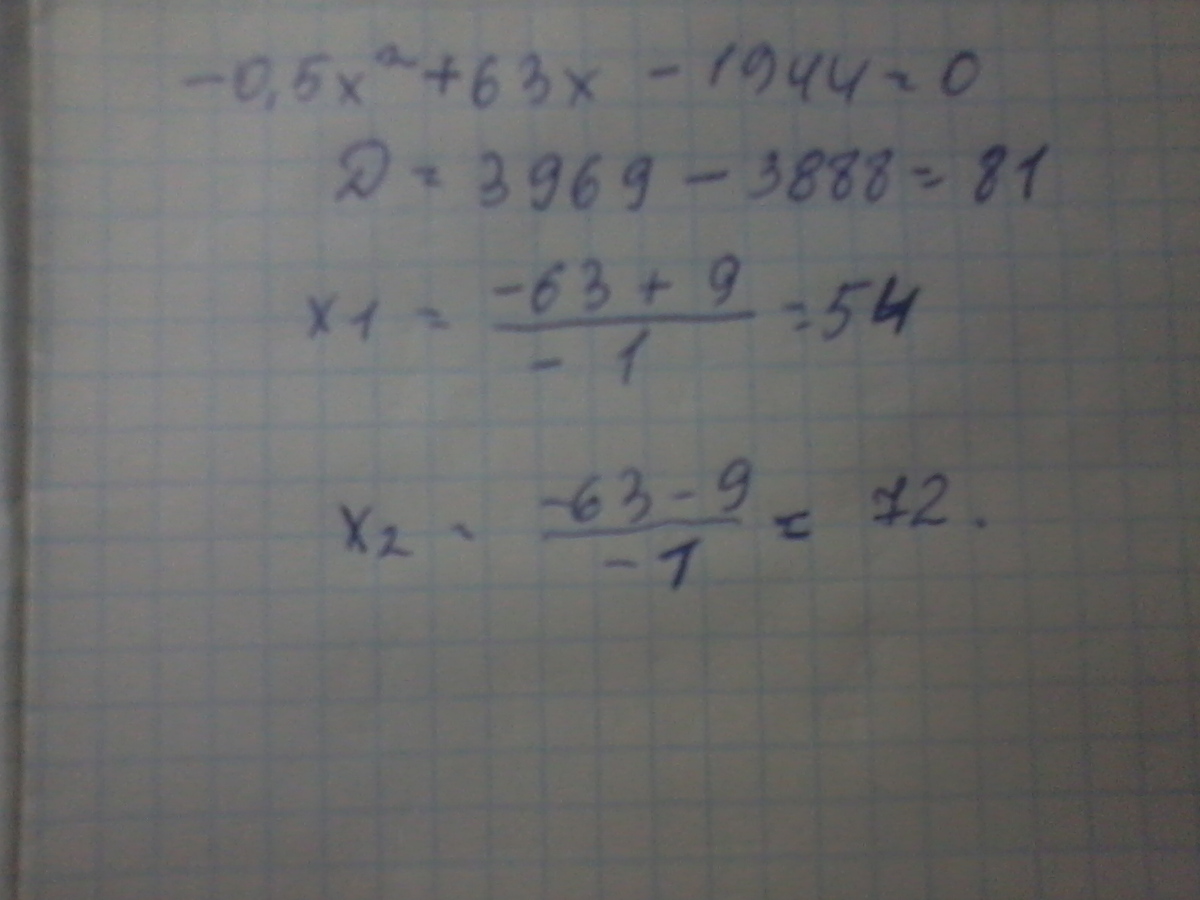 -0,5x² + 63x - 1944 = 0
D = 3969 - 3888 = 81
x1 = (-63 + 9) / (-1) = 54
x2 = (-63 - 9) / (-1) = 72.